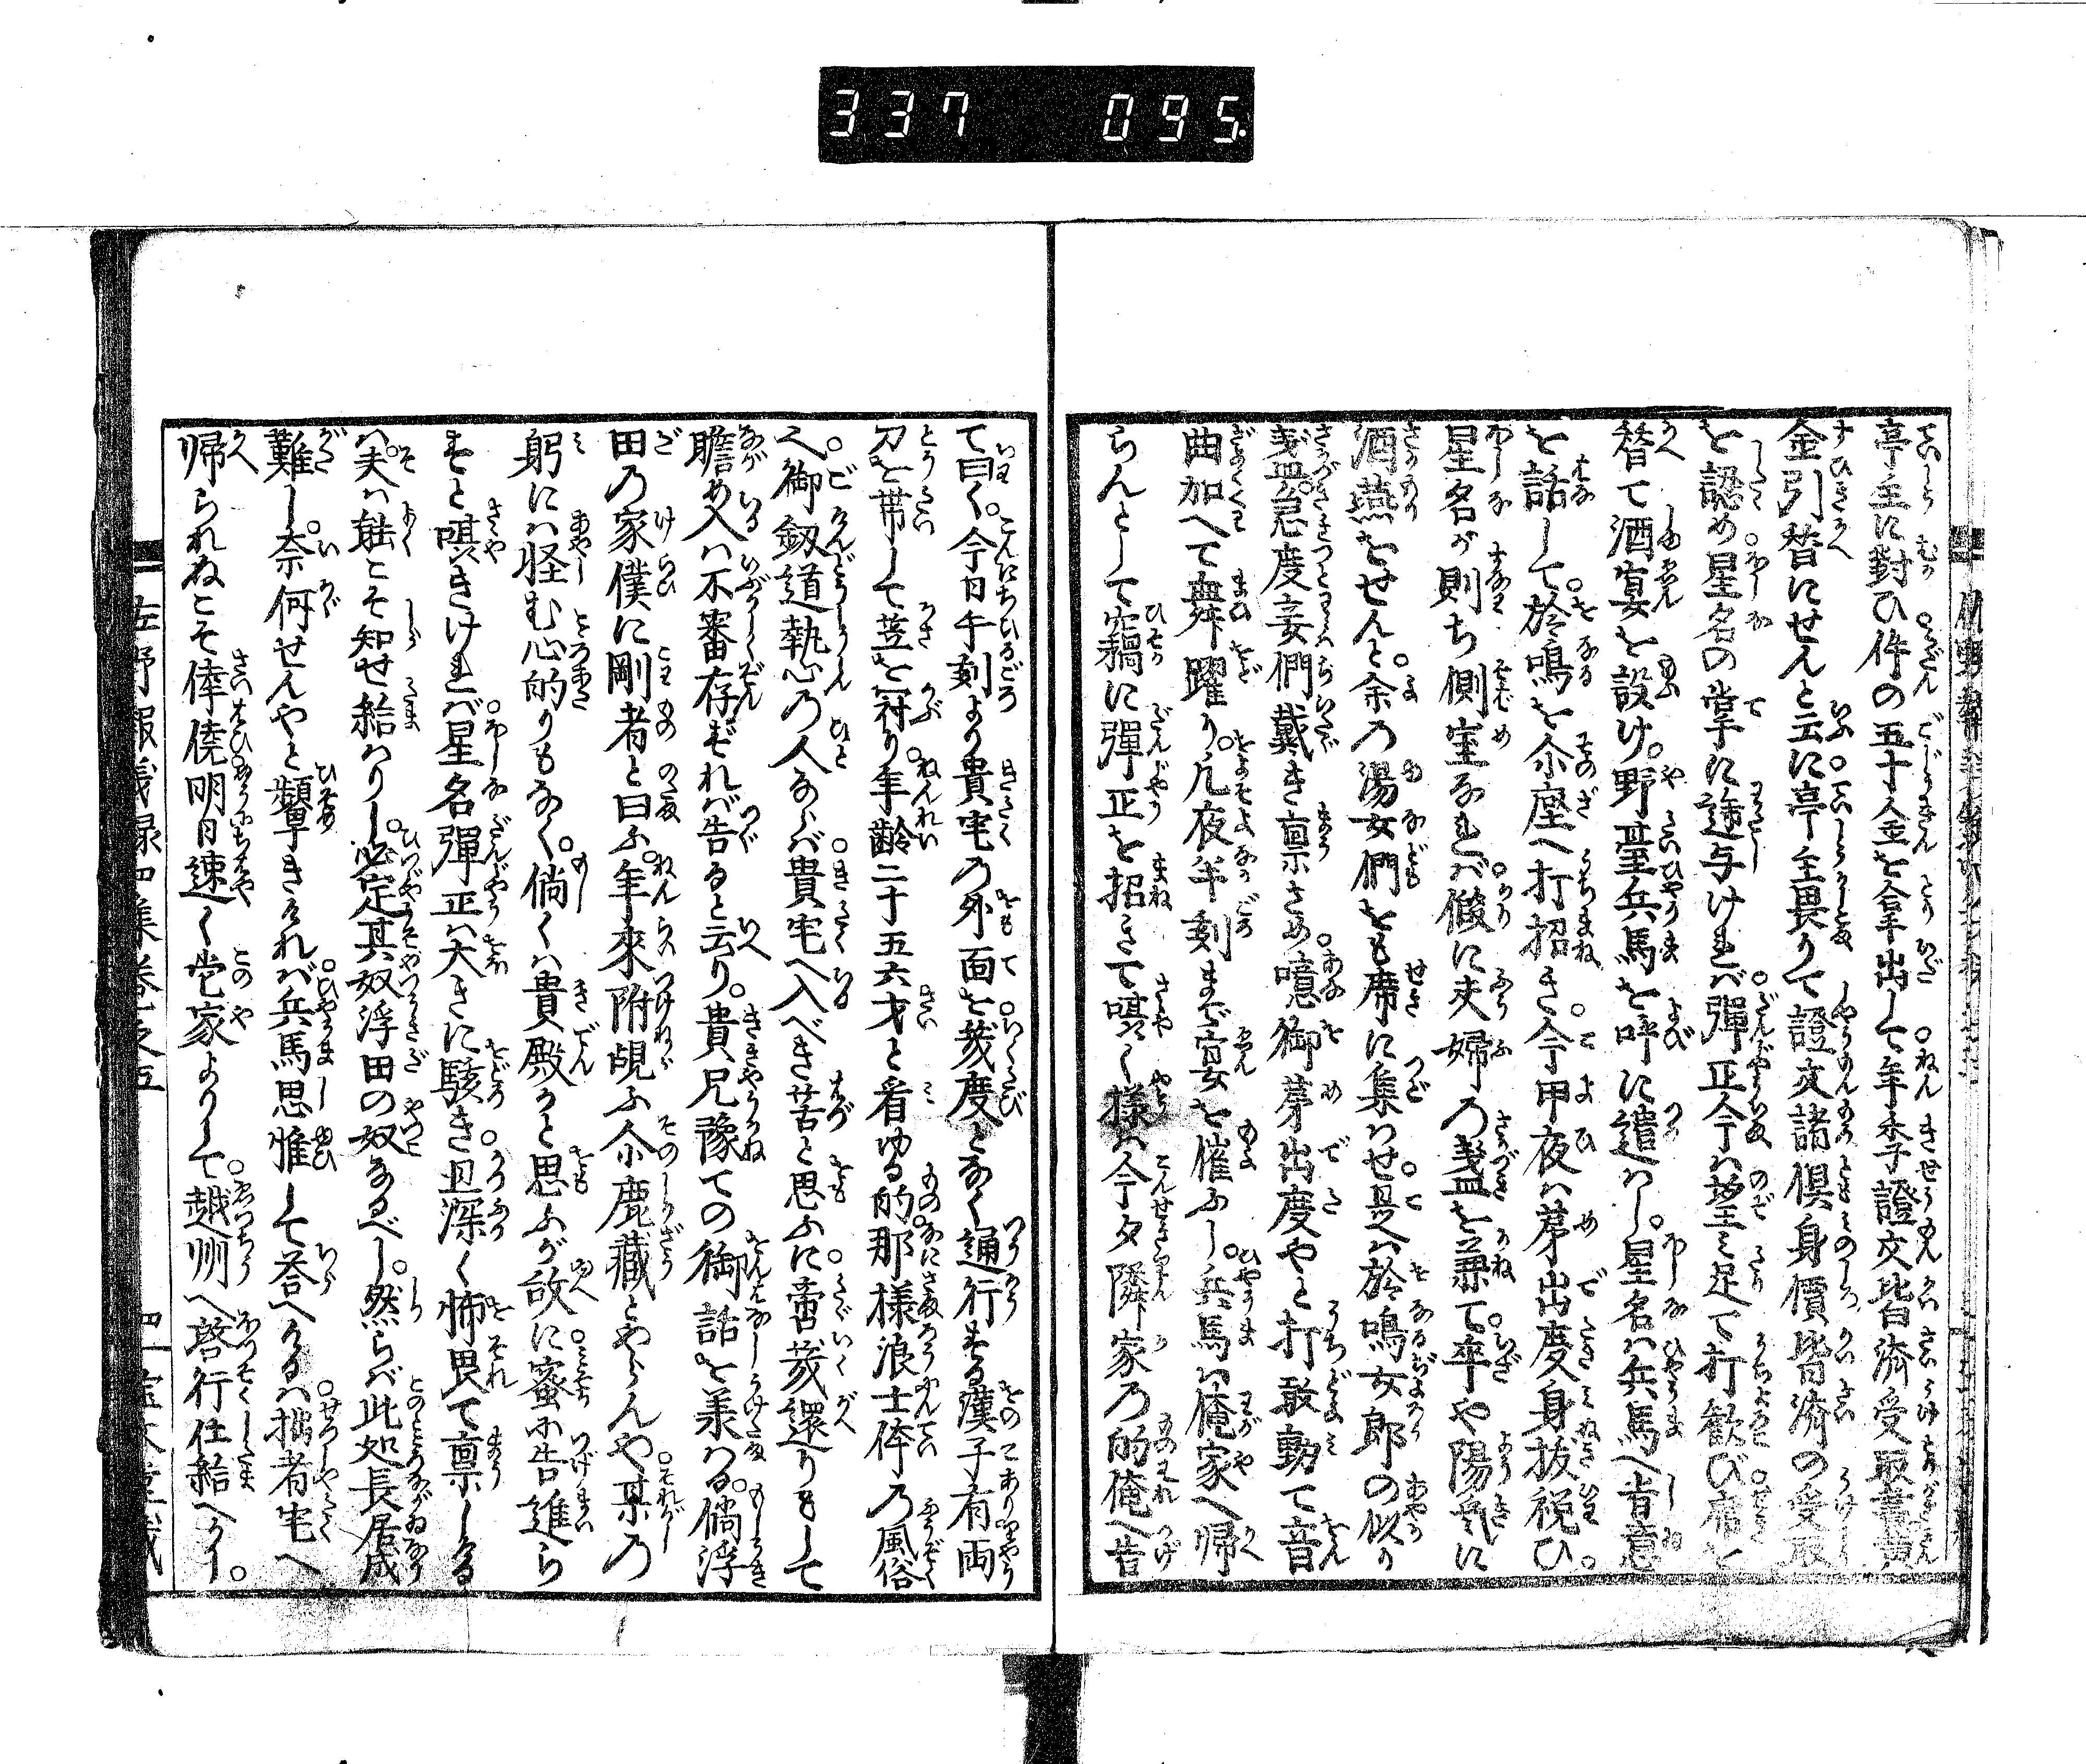 337 095
亭主に對ひ件の五十金を拿出して年季證文皆済受取書黄
金引替にせんと云に亭主畏りて證文諸倶身價皆済の受取
を認め星名の掌に逓与けれバ彈正今ハ望ミ足て打歓び席を
替て酒宴を設け野臺兵馬を呼に遣ハし星名ハ兵馬へ肯意
を話して於鳴を尒座へ打招き今甲夜ハ芽出度身抜祝ひ
星名が則ち側室なれバ假に夫婦の盞を兼て卒や陽気に
酒燕をせんと余の湯女們をも席に集ハせ是ハ於鳴女郎の似り
盞忌度妾們戴き稟さめ噫御芽出度やと打敢動て音
曲加へて舞躍り凡夜半刻まで宴を催ふし兵馬ハ俺家へ帰
らんとして竊に彈正を招きて𠵅く様ハ今夕隣家の的俺へ告
て曰く今日午刻より貴宅の外面を幾度となく通行する漢子有両
刀を帯して笠を冠り年齢二十五六才と看ゆる的那様浪士体の風俗
へ御劔道執心の人ならバ貴宅へ入べき苦と思ふに啻幾還りもして
瞻め入ハ不審存ずれバ告ると云り貴兄豫ての御話を羕ハる倘浮
田の家僕に剛者と曰ふ年来附覘ふ尒鹿藏とやらんや某の
躬にハ怪む心的りもなく倘くハ貴殿かと思ふが故に蜜に告進ら
すと𠵅きけれバ星名彈正ハ大きに駭き且深く怖畏て稟しける
ハ夫ハ䏻こそ知せ給ハりし必定其奴浮田の奴なるべし然らバ此処長居成
難し奈何せんやと顰きけれバ兵馬思惟して荅へけるハ拙者宅へ
帰られねこそ倖僥明日速く当家よりして越州へ啓行仕給へかし